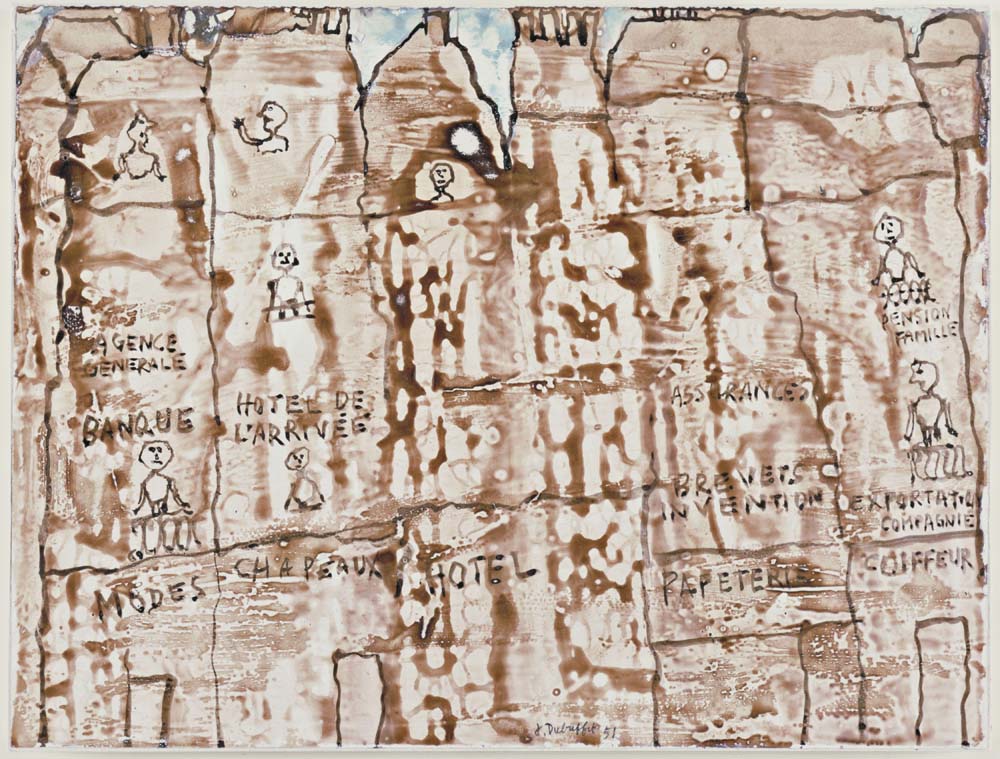 PENSION
FAMILLE
AGENCE
GENERALE
BANQUE
HOTEL DE
L'ARRIVÉE
ASSURANCES
BREVETS
INVENTION
EXPORTATION
COMPAGNIE
MODES
CHAPEAUX
HOTEL
PAPETERIE
COIFFEUR
J. Dubuffet 51